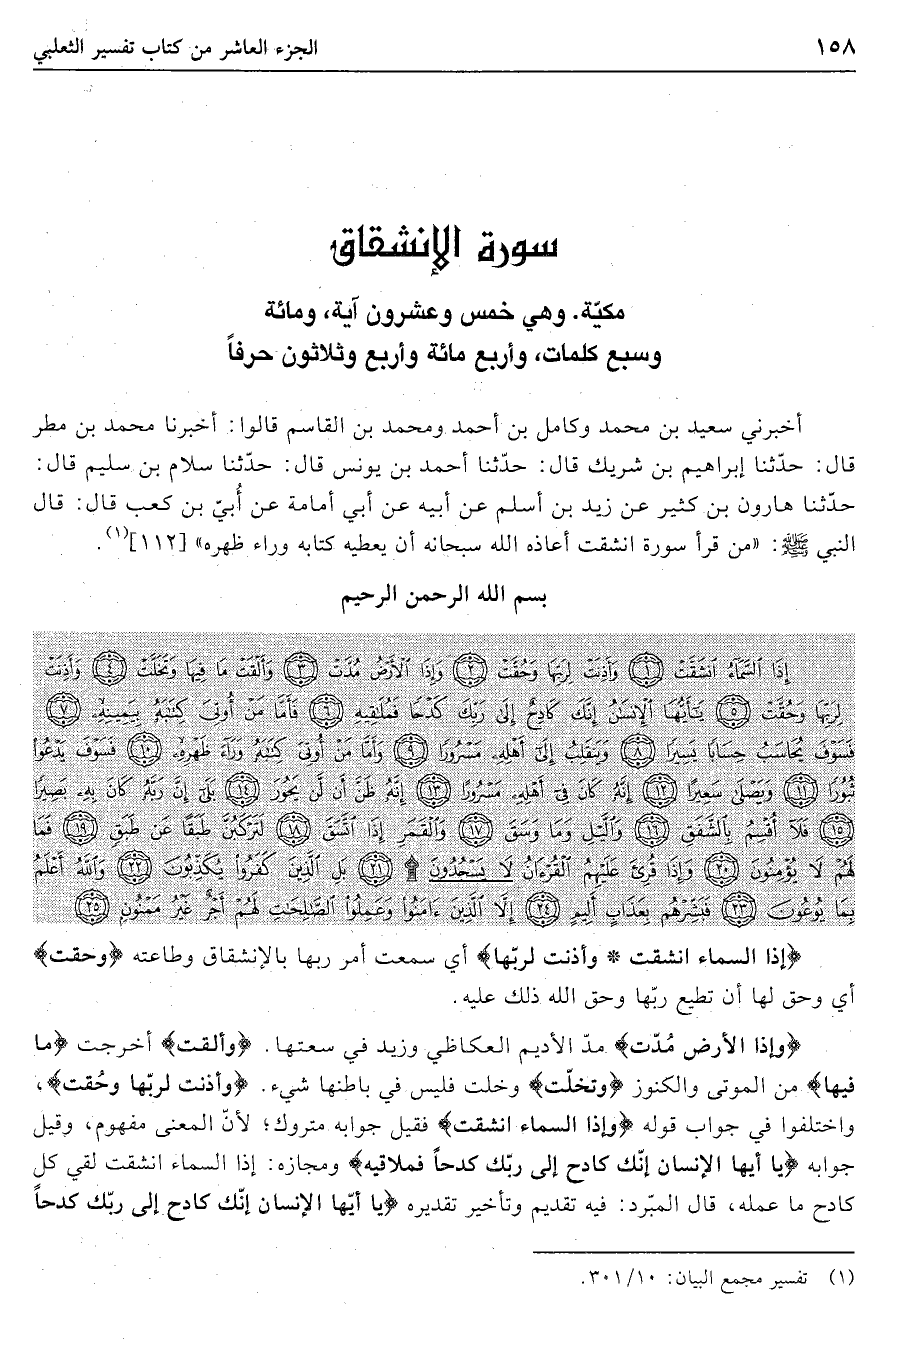 ١٥٨
الجزء العاشر من كتاب تفسير الثعلبي
سورة الإنشقاق
مكيّة. وهي خمس وعشرون آية، ومائة
وسبع كلمات، وأربع مائة وأربع وثلاثون حرفاً
أخبرني سعيد بن محمد وكامل بن أحمد ومحمد بن القاسم قالوا: أخبرنا محمد بن مطر
قال: حدّثنا إبراهيم بن شريك قال: حدّثنا أحمد بن يونس قال: حدّثنا سلام بن سليم قال:
حدّثنا هارون بن كثير عن زيد بن أسلم عن أبيه عن أبي أمامة عن أُبيّ بن كعب قال: قال
النبي ﷺ: «من قرأ سورة انشقت أعاذه الله سبحانه أن يعطيه كتابه وراء ظهره» [١١٢](١).
بسم الله الرحمن الرحيم
إِذَا ٱلسَّمَآءُ ٱنشَقَّتْ ﴿١﴾ وَأَذِنَتْ لِرَبِّهَا وَحُقَّتْ ﴿٢﴾ وَإِذَا ٱلْأَرْضُ مُدَّتْ ﴿٣﴾ وَأَلْقَتْ مَا فِيهَا وَتَخَلَّتْ ﴿٤﴾ وَأَذِنَتْ
لِرَبِّهَا وَحُقَّتْ ﴿٥﴾ يَـٰٓأَيُّهَا ٱلْإِنسَـٰنُ إِنَّكَ كَادِحٌ إِلَىٰ رَبِّكَ كَدْحًا فَمُلَـٰقِيهِ ﴿٦﴾ فَأَمَّا مَنْ أُوتِىَ كِتَـٰبَهُۥ بِيَمِينِهِۦ ﴿٧﴾
فَسَوْفَ يُحَاسَبُ حِسَابًا يَسِيرًا ﴿٨﴾ وَيَنقَلِبُ إِلَىٰٓ أَهْلِهِۦ مَسْرُورًا ﴿٩﴾ وَأَمَّا مَنْ أُوتِىَ كِتَـٰبَهُۥ وَرَآءَ ظَهْرِهِۦ ﴿١٠﴾ فَسَوْفَ يَدْعُوا۟
ثُبُورًا ﴿١١﴾ وَيَصْلَىٰ سَعِيرًا ﴿١٢﴾ إِنَّهُۥ كَانَ فِىٓ أَهْلِهِۦ مَسْرُورًا ﴿١٣﴾ إِنَّهُۥ ظَنَّ أَن لَّن يَحُورَ ﴿١٤﴾ بَلَىٰٓ إِنَّ رَبَّهُۥ كَانَ بِهِۦ بَصِيرًا
﴿١٥﴾ فَلَآ أُقْسِمُ بِٱلشَّفَقِ ﴿١٦﴾ وَٱلَّيْلِ وَمَا وَسَقَ ﴿١٧﴾ وَٱلْقَمَرِ إِذَا ٱتَّسَقَ ﴿١٨﴾ لَتَرْكَبُنَّ طَبَقًا عَن طَبَقٍ ﴿١٩﴾ فَمَا
لَهُمْ لَا يُؤْمِنُونَ ﴿٢٠﴾ وَإِذَا قُرِئَ عَلَيْهِمُ ٱلْقُرْءَانُ لَا يَسْجُدُونَ ۩ ﴿٢١﴾ بَلِ ٱلَّذِينَ كَفَرُوا۟ يُكَذِّبُونَ ﴿٢٢﴾ وَٱللَّهُ أَعْلَمُ
بِمَا يُوعُونَ ﴿٢٣﴾ فَبَشِّرْهُم بِعَذَابٍ أَلِيمٍ ﴿٢٤﴾ إِلَّا ٱلَّذِينَ ءَامَنُوا۟ وَعَمِلُوا۟ ٱلصَّـٰلِحَـٰتِ لَهُمْ أَجْرٌ غَيْرُ مَمْنُونٍ ﴿٢٥﴾
﴿إذا السماء انشقت * وأذنت لربّها﴾ أي سمعت أمر ربها بالإنشقاق وطاعته ﴿وحقت﴾
أي وحق لها أن تطيع ربّها وحق الله ذلك عليه.
﴿وإذا الأرض مُدّت﴾ مدّ الأديم العكاظي وزيد في سعتها. ﴿وألقت﴾ أخرجت ﴿ما
فيها﴾ من الموتى والكنوز ﴿وتخلّت﴾ وخلت فليس في باطنها شيء. ﴿وأذنت لربّها وحُقت﴾،
واختلفوا في جواب قوله ﴿وإذا السماء انشقت﴾ فقيل جوابه متروك؛ لأنّ المعنى مفهوم، وقيل
جوابه ﴿يا أيها الإنسان إنّك كادح إلى ربّك كدحاً فملاقيه﴾ ومجازه: إذا السماء انشقت لقي كل
كادح ما عمله، قال المبّرد: فيه تقديم وتأخير تقديره ﴿يا أيّها الإنسان إنّك كادح إلى ربّك كدحاً
(١) تفسير مجمع البيان: ١٠/ ٣٠١.